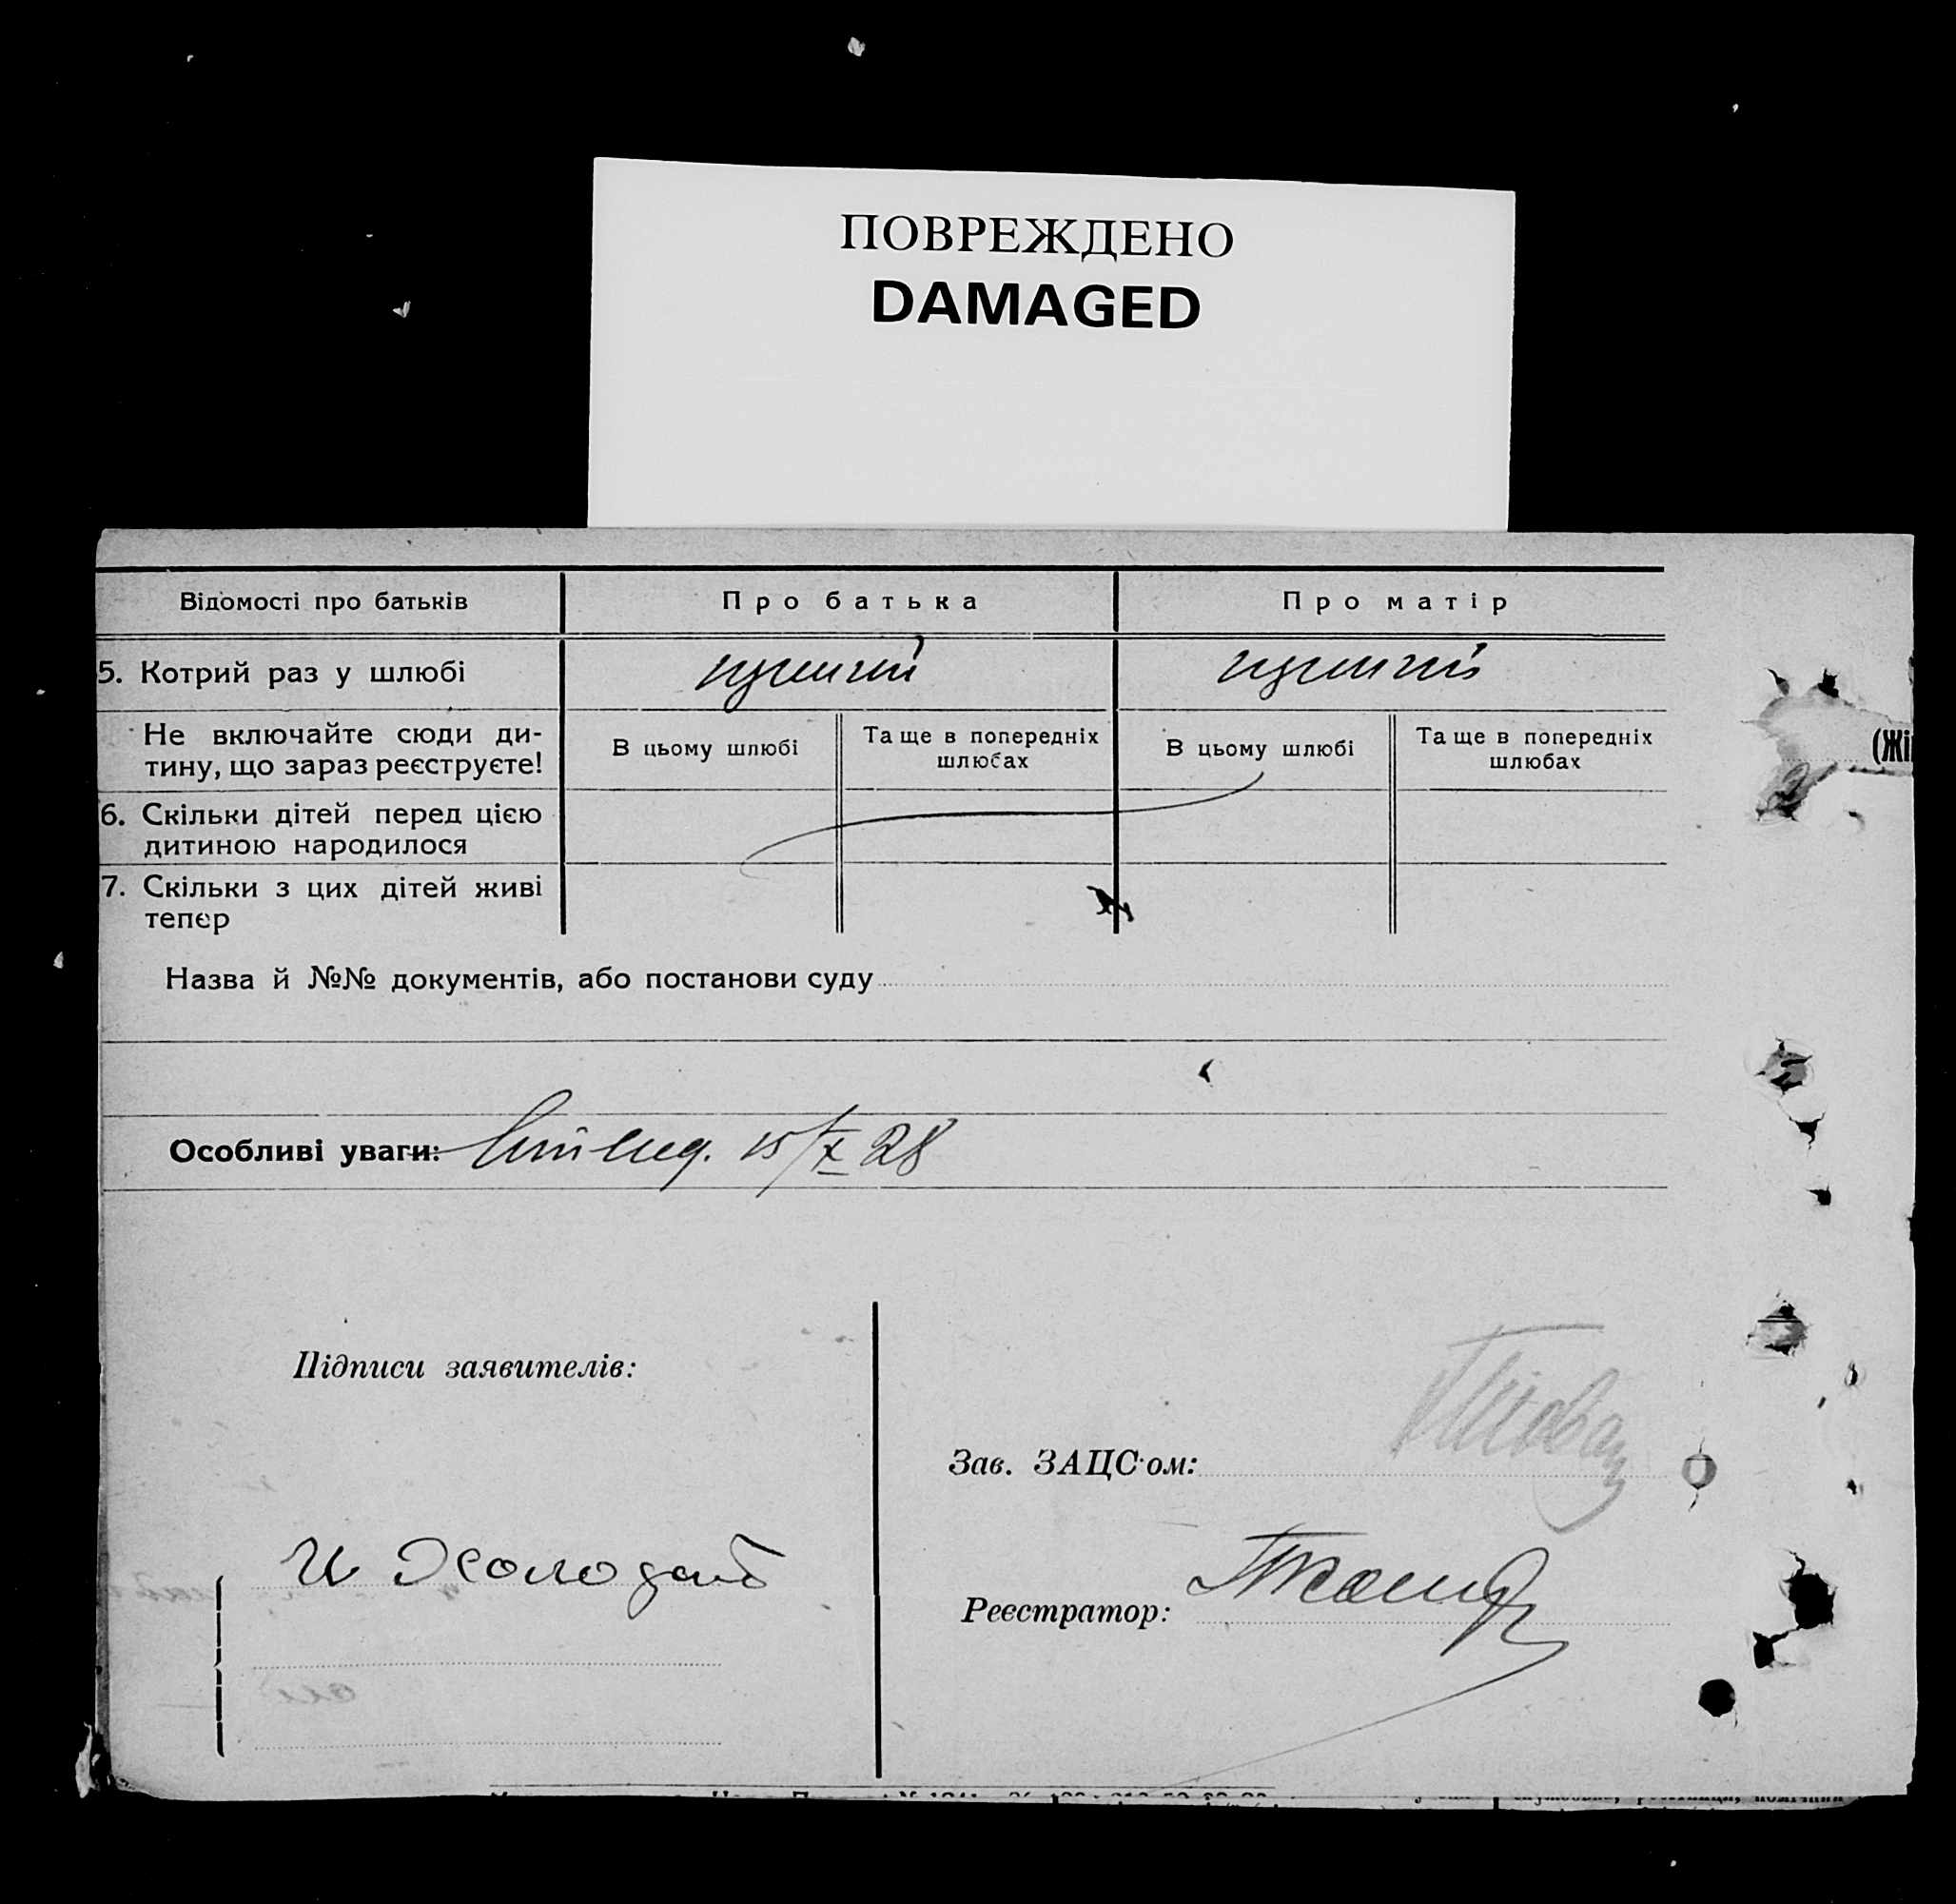 ПОВРЕЖДЕНО
DAMAGED
Відомості про батьків
Про батька
Про матір
5. Котрий раз у шлюбі
перший
перший
Не включайте сюди ди-
тину, що зараз реєструєте!
В цьому шлюбі
Та ще в попередніх
шлюбах
В цьому шлюбі
Та ще в попередніх
шлюбах
(Жі
6. Скільки дітей перед цією
дитиною народилося
7. Скільки з цих дітей живі
тепер
Назва й №№ документів, або постанови суду
Особливі уваги:
15/X 28
Підписи заявителів:
Зав. ЗАЦС'ом:
Реєстратор: